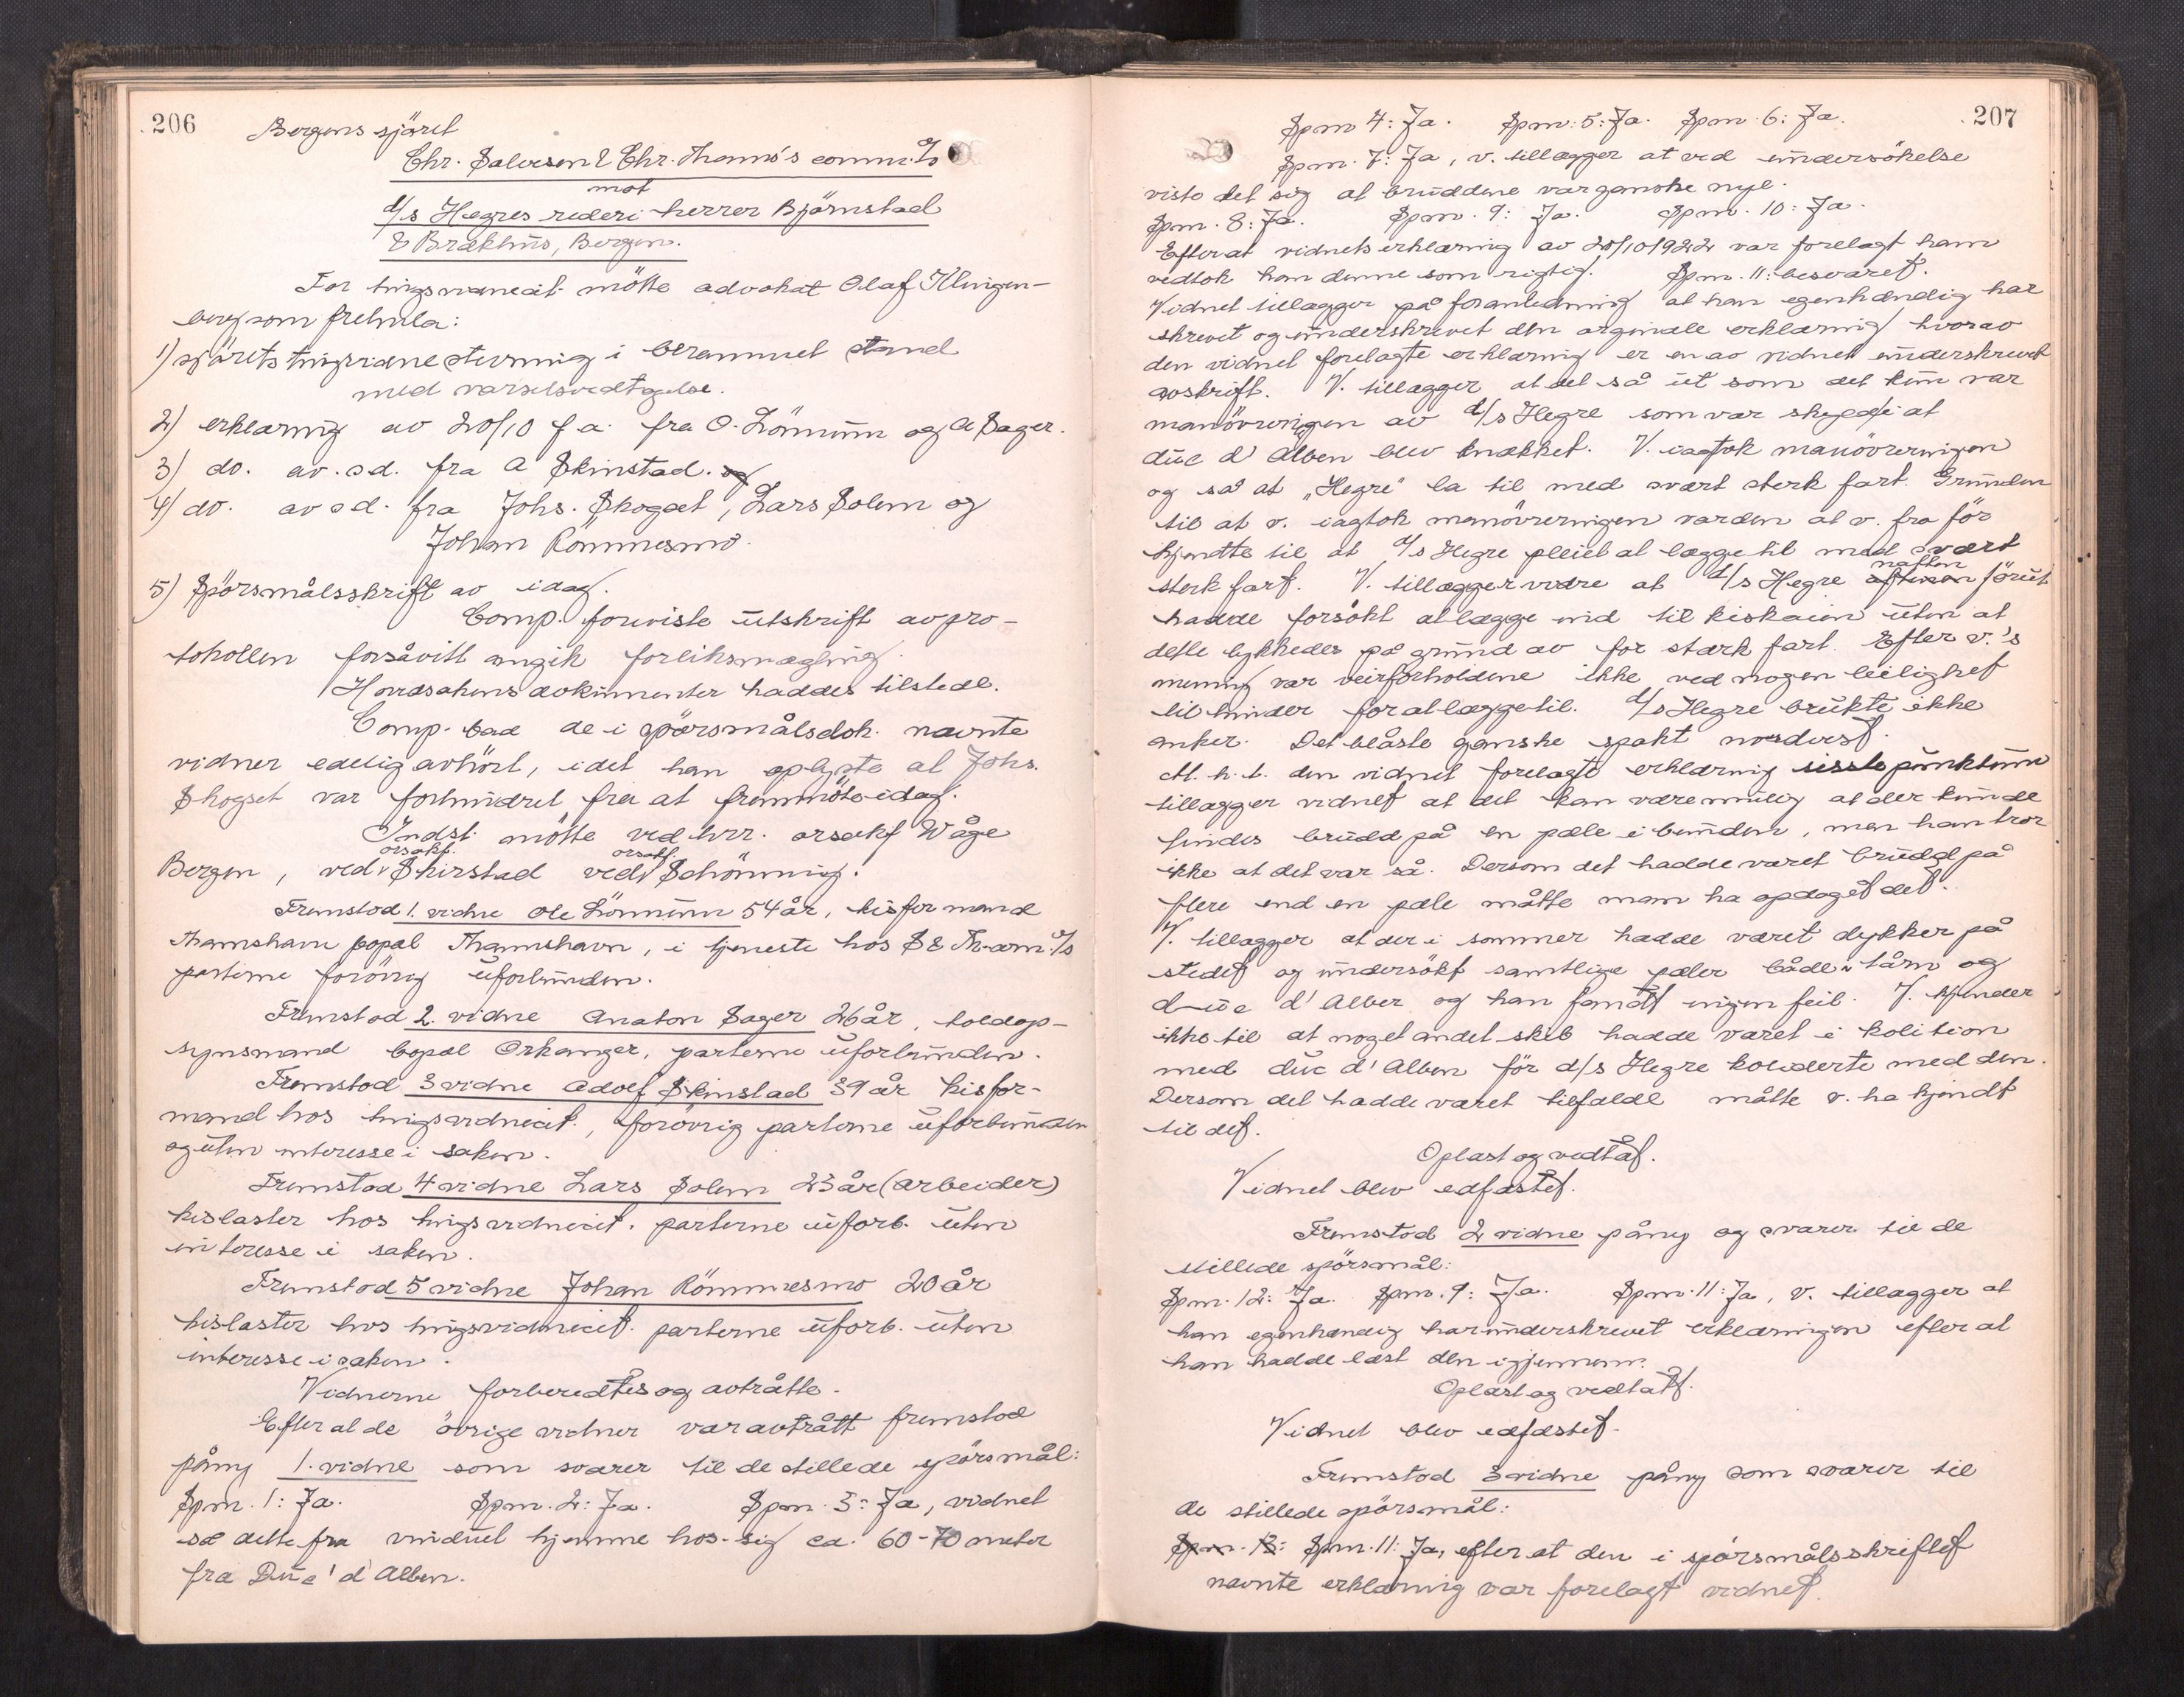 206
Bergens sjöret
Chr. Salvesen & Chr. Thams's comm. A/s
mot
d/s Hegres rederi herrer Björnstad
& Brækhus, Bergen.
For tingsvidnecit. mötte advokat Olaf Klingen-
berg som fremla:
1) sjörets tingsvidnestevning i berammet stand
med varselsvedtagelse.
2) erklæring av 20/10 f.a. fra O. Lönnum og A Sager.
3) do. av s.d. fra A Skinstad. og
4) do. av s.d. fra Johs. Skogset, Lars Solem og
Johan Römmesmo.
5) Spörsmålsskrift av idag.
Comp. foreviste utskrift av pro-
tokollen forsåvitt angik forliksmægling.
Hovedsakens dokumenter haddes tilstede.
Comp. bad de i spörsmålsdok. nævnte
vidner edelig avhört, idet han oplyste at Johs.
Skogset var forhindret fra at fremmöte idag.
Indst. mötte ved hrr. orsakf Wåge
Bergen, ved orsakf. Skirstad ved orsakf. Schönning.
Fremstod 1. vidne Ole Lönnum 54 år, kisformand
Thamshavn bopæl Thamshavn, i tjeneste hos S & Th comm. A/s
parterne forövrig uforbunden.
Fremstod 2. vidne Anaton Sager 26 år, toldop-
synsmand bopæl Orkanger, parterne uforbunden.
Fremstod 3 vidne Adolf Skinstad 39 år kisfor-
mand hos tingsvidnecit., forövrig parterne uforbunden
og uten interesse i saken.
Fremstod 4 vidne Lars Solem 23 år (arbeider)
kislaster hos tingsvidnecit. parterne uforb. uten
interesse i saken.
Fremstod 5 vidne Johan Römmesmo 20 år
kislaster hos tingsvidnecit. parterne uforb. uten
interesse i saken.
Vidnerne forberedtes og avtrådte.
Efter at de övrige vidner var avtrått fremstod
påny 1. vidne som svarer til de stillede spörsmål:
Spm. 1: Ja. Spm. 2: Ja. Spm. 3: Ja, vidnet
så dette fra vinduet hjemme hos sig ca. 60-70 meter
fra Duc d'Alben.
207
Spm 4: Ja. Spm. 5: Ja. Spm. 6: Ja.
Spm. 7: Ja, v. tillægger at ved undersökelse
viste det sig at bruddene var ganske nye.
Spm. 8: Ja. Spm. 9: Ja. Spm. 10: Ja.
Efter at vidnets erklæring av 20/10 1922 var forelagt ham
vedtok han denne som rigtig. Spm. 11: besvaret.
Vidnet tillægger på foranledning at han egenhændig har
skrevet og underskrevet den orginale erklæring hvorav
den vidnet forelagte erklæring er en av vidnet underskrevet
avskrift. V. tillægger at det så ut som det kun var
manövreringen av d/s Hegre som var skyld i at
duc d'Alben blev knækket. V. iagtok manövreringen
og så at "Hegre" la til med svært sterk fart. Grunden
til at v. iagtok manövreringen var den at v. fra för
kjendte til at d/s Hegre pleiet at lægge til med svært
sterk fart. V. tillægger videre at d/s Hegre aftenen natten förut
hadde forsökt at lægge ind til kiskaien uten at
dette lykkedes på grund av for stærk fart. Efter v.'s
mening var veirforholdene ikke ved nogen leilighet
til hinder for at lægge til. d/s Hegre brukte ikke
anker. Det blåste ganske spakt nordvest.
M. h. t. den vidnet forelagte erklæring siste punktum
tillægger vidnet at det kan være mulig at der kunde
findes brudd på en pæle i bunden, men han tror
ikke at det var så. Dersom det hadde været brudd på
flere end en pæle måtte man ha opdaget det.
V. tillægger at der i sommer hadde været dykker på
stedet og undersökt samtlige pæler både i tårn og
duc d'Alber og han fandt ingen feil. V. kjender
ikke til at noget andet skib hadde været i kolition
med duc d'Alben för d/s Hegre koliderte med den.
Dersom det hadde været tilfælde måtte v. ha kjendt
til det.
Oplæst og vedtåt.
Vidnet blev edfæstet.
Fremstod 2 vidne påny og svarer til de
stillede spörsmål:
Spm. 12: Ja. Spm. 9: Ja. Spm. 11: Ja, v. tillægger at
han egenhændig har underskrevet erklæringen efter at
han hadde læst den igjennem.
Oplæst og vedtatt.
Vidnet blev edfæstet.
Fremstod 3 vidne påny som svarer til
de stillede spörsmål:
Spm. 13: Spm. 11: Ja, efter at den i spörsmålsskriftet
nævnte erklæring var forelagt vidnet.